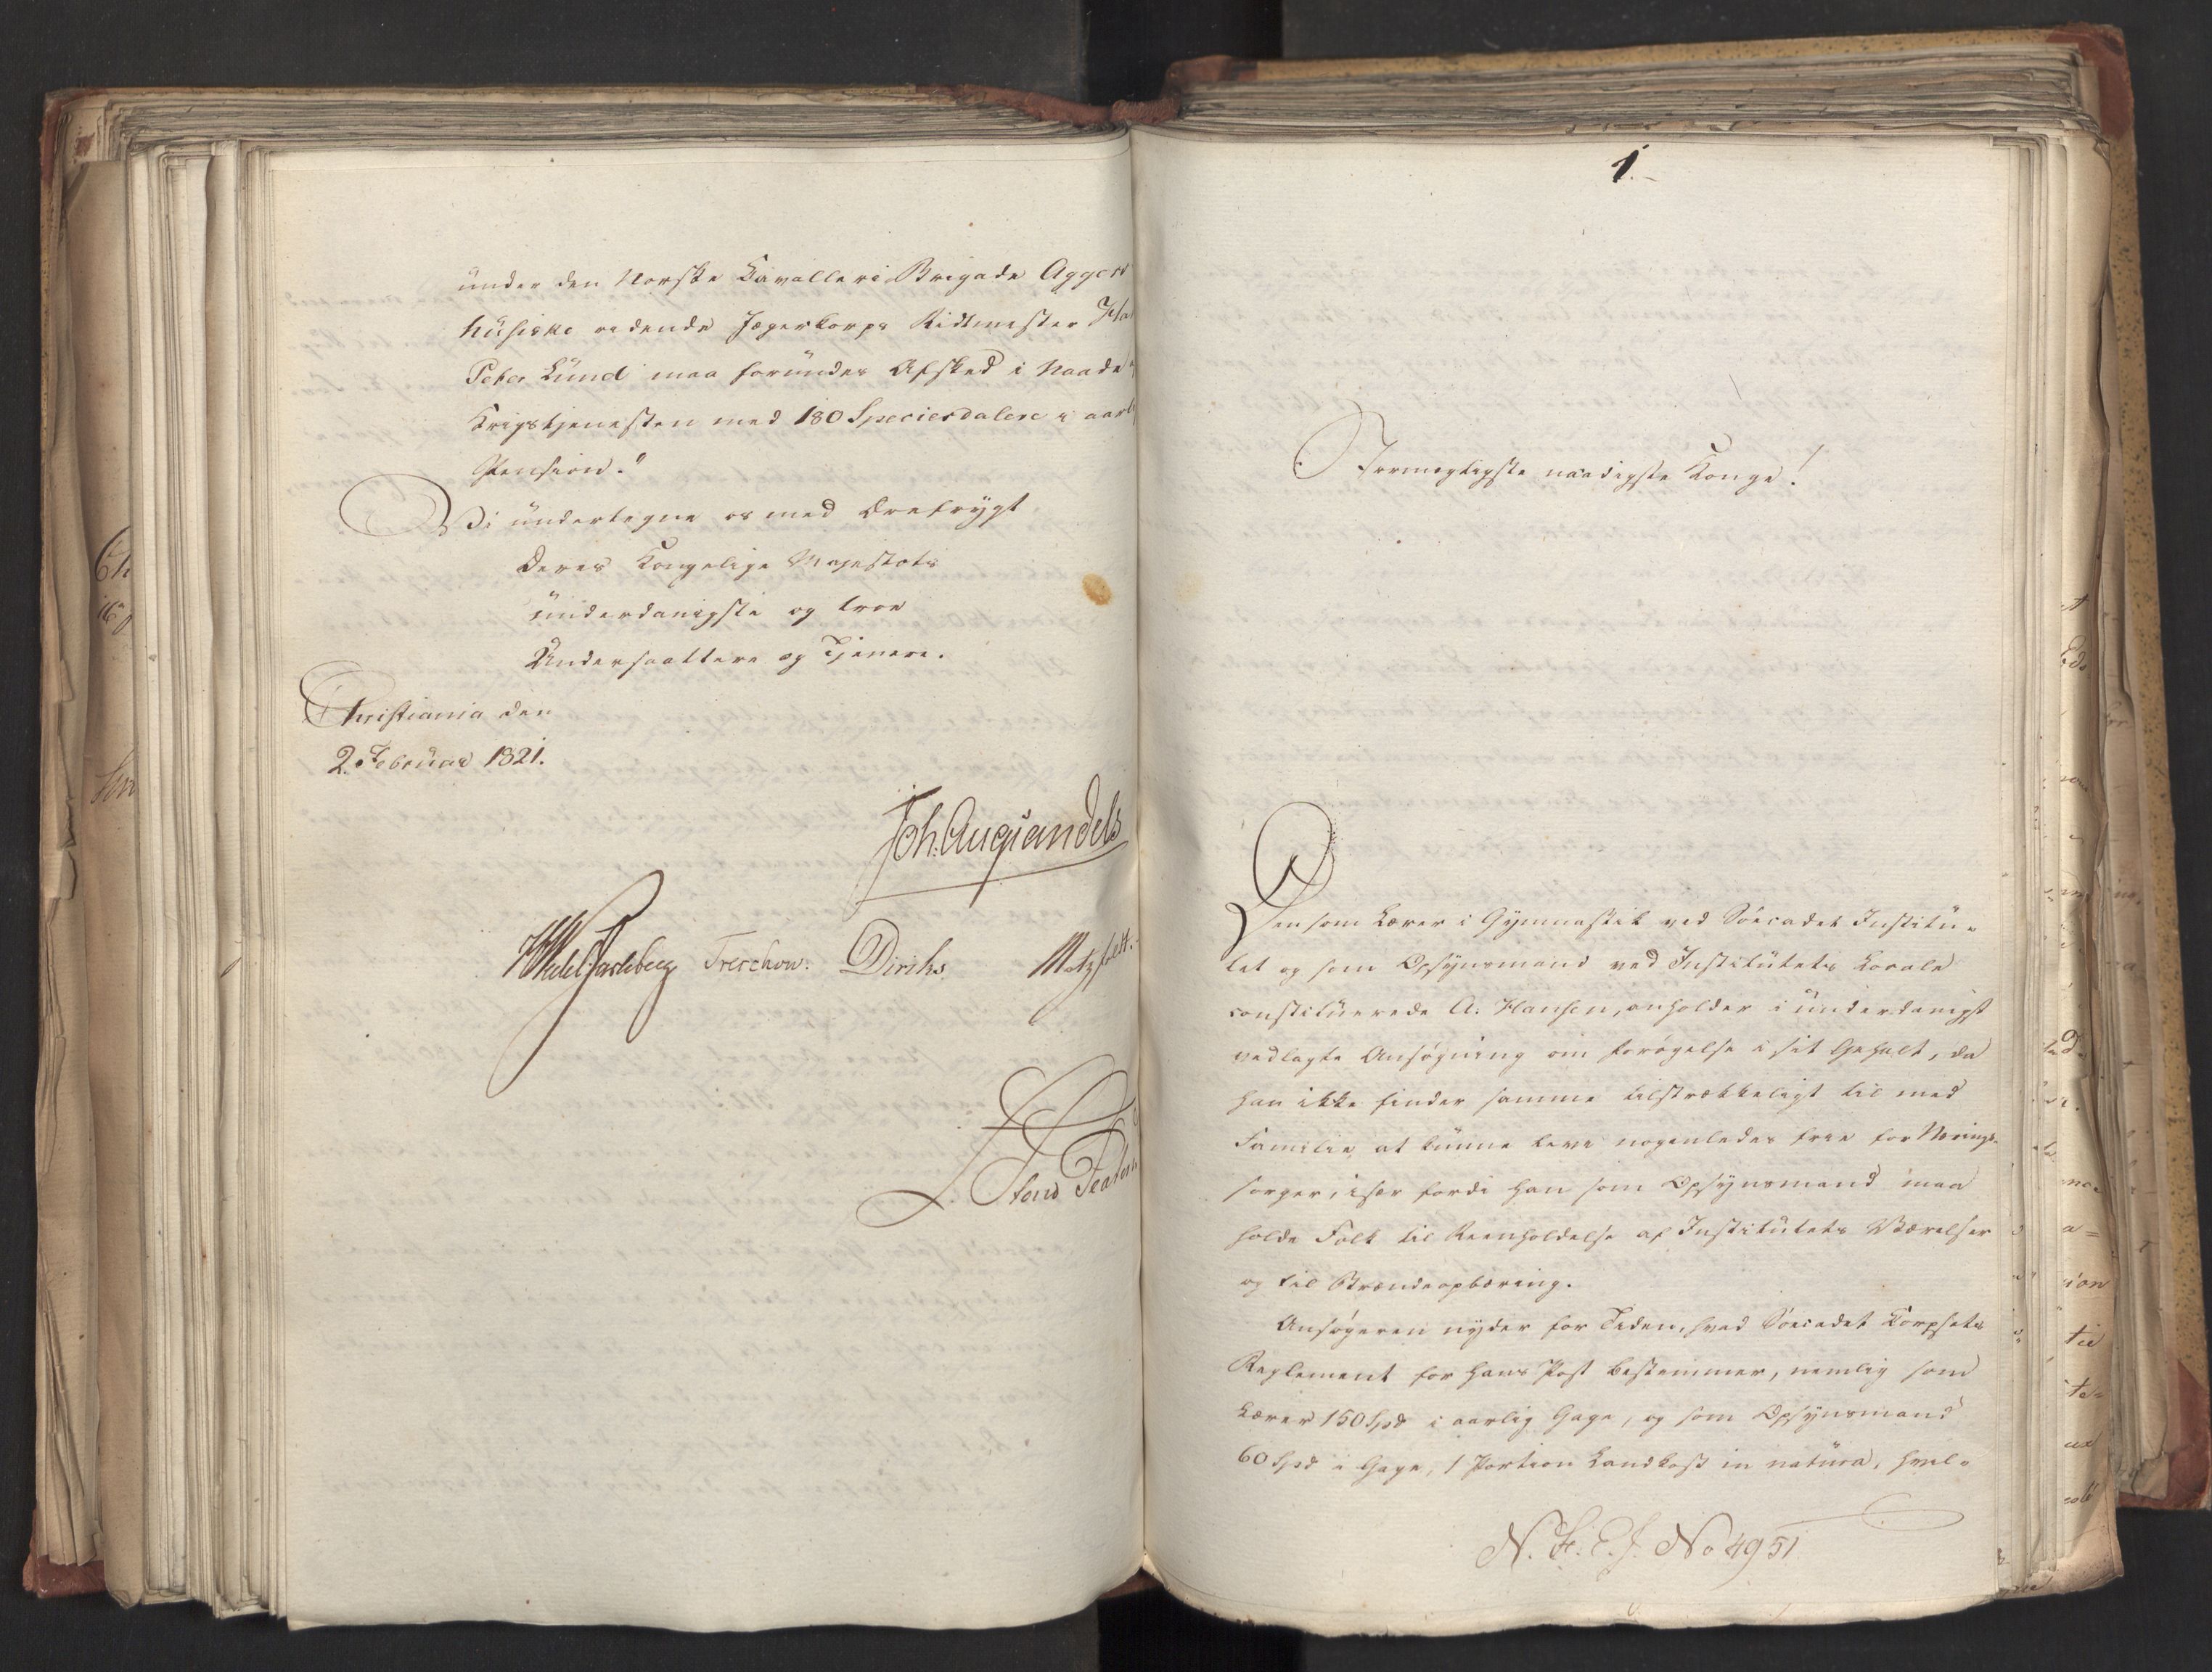 under den Norske Kavalleri Brigade Aggers
husiske ridende Jægerkorps Ridtmester Ha
Peter Lund maa forundes Afsked i Naade
Krigstjenesten med 180 Speciesdalere i aarli
Pension."
Vi undertegne os med Ærefrygt
Deres Kongelige Majestæts
underdanigste og troe
Undersaattere og Tjenere.
Christiania den
2. Februar 1821.
Joh. Aug Sandels
Treschow. Diriks Motzfeldt.
1.
Stormægtigste naadigste Konge!
Den som Lærer i Gymnastik ved Søecadet Institu-
tet og som Opsynsmand ved Institutets Locale
constituerede A. Hansen, anholder i underdanigst
vedlagte Ansøgning om Forøgelse i sit Gehalt, da
han ikke finder samme tilstrækkeligt til med
Familie at kunne leve nogenledes frie for Nærings-
sorger, især fordi han som Opsynsmand maa
holde Folk til Reenholdelse af Institutets Værelser
og til Brændeopbæring.
Ansøgeren nyder for Tiden, hvad Søecadet Korpsets
Reglement for hans Post bestemmer, nemlig som
Lærer 150 Spd i aarlig Gage, og som Opsynsmand
60 Spd i Gage, 1 Portion Landkost in natura, hvil-
No 4951